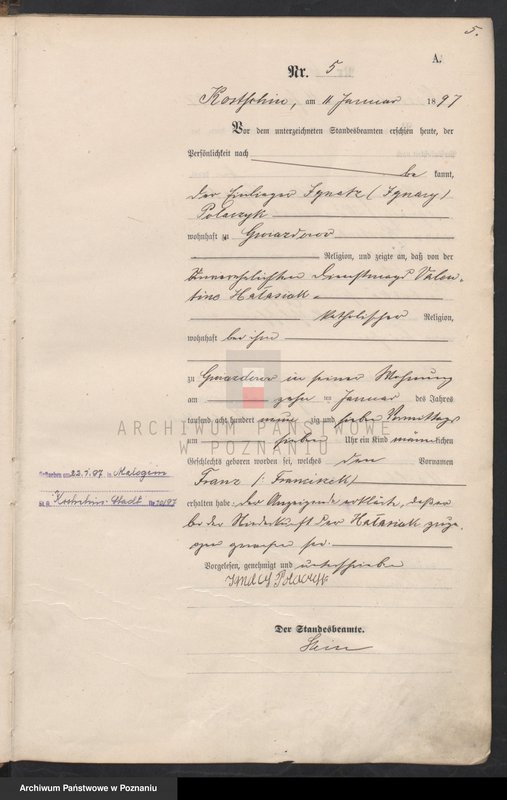 5.
A.
Nr. 5
Kostschin, am 11 Januar 1897
Vor dem unterzeichneten Standesbeamten erschien heute, der
Persönlichkeit nach
be kannt,
der Einlieger Ignatz (Ignacy)
Polaczyk
wohnhaft zu Gwiazdowo
Religion, und zeigte an, daß von der
unverehelichten Dienstmagd Valen-
tine Hałasiak
katholischer Religion,
wohnhaft bei ihm
zu Gwiazdowo in seiner Wohnung
am zehn ten Januar des Jahres
tausend acht hundert neun zig und sieben Vormittags
um sieben Uhr ein Kind männlichen
Geschlechts geboren worden sei, welches den Vornamen
Franz (: Franciszek)
erhalten habe. der Anzeigende erklärte, daß er
bei der Niederkunft der Hałasiak zuge-
gen gewesen sei.
Vorgelesen, genehmigt und unterschrieben
Polaczyk
Der Standesbeamte.
Gestorben am 23.7.07 in
St. A. Kostschin-Stadt Nr.
ARCHIWUM PAŃSTWOWE
W POZNANIU
Archiwum Państwowe w Poznaniu